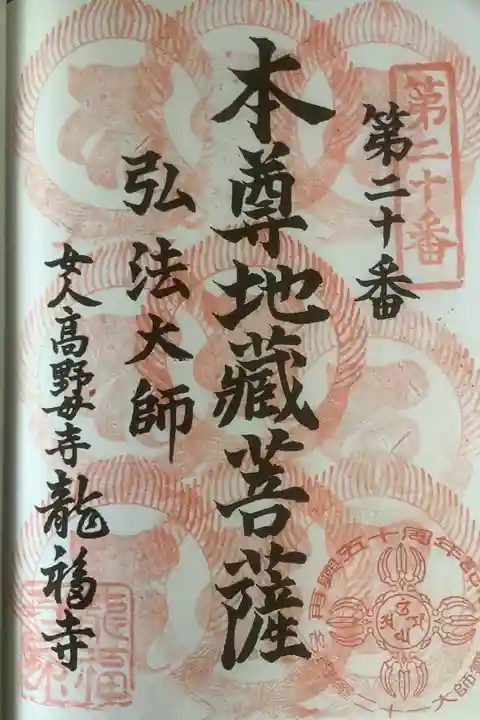 第二十番
第二十番
本尊地藏菩薩
弘法大師
女人高野女寺龍福寺
再興五十周年記
大師
龍福